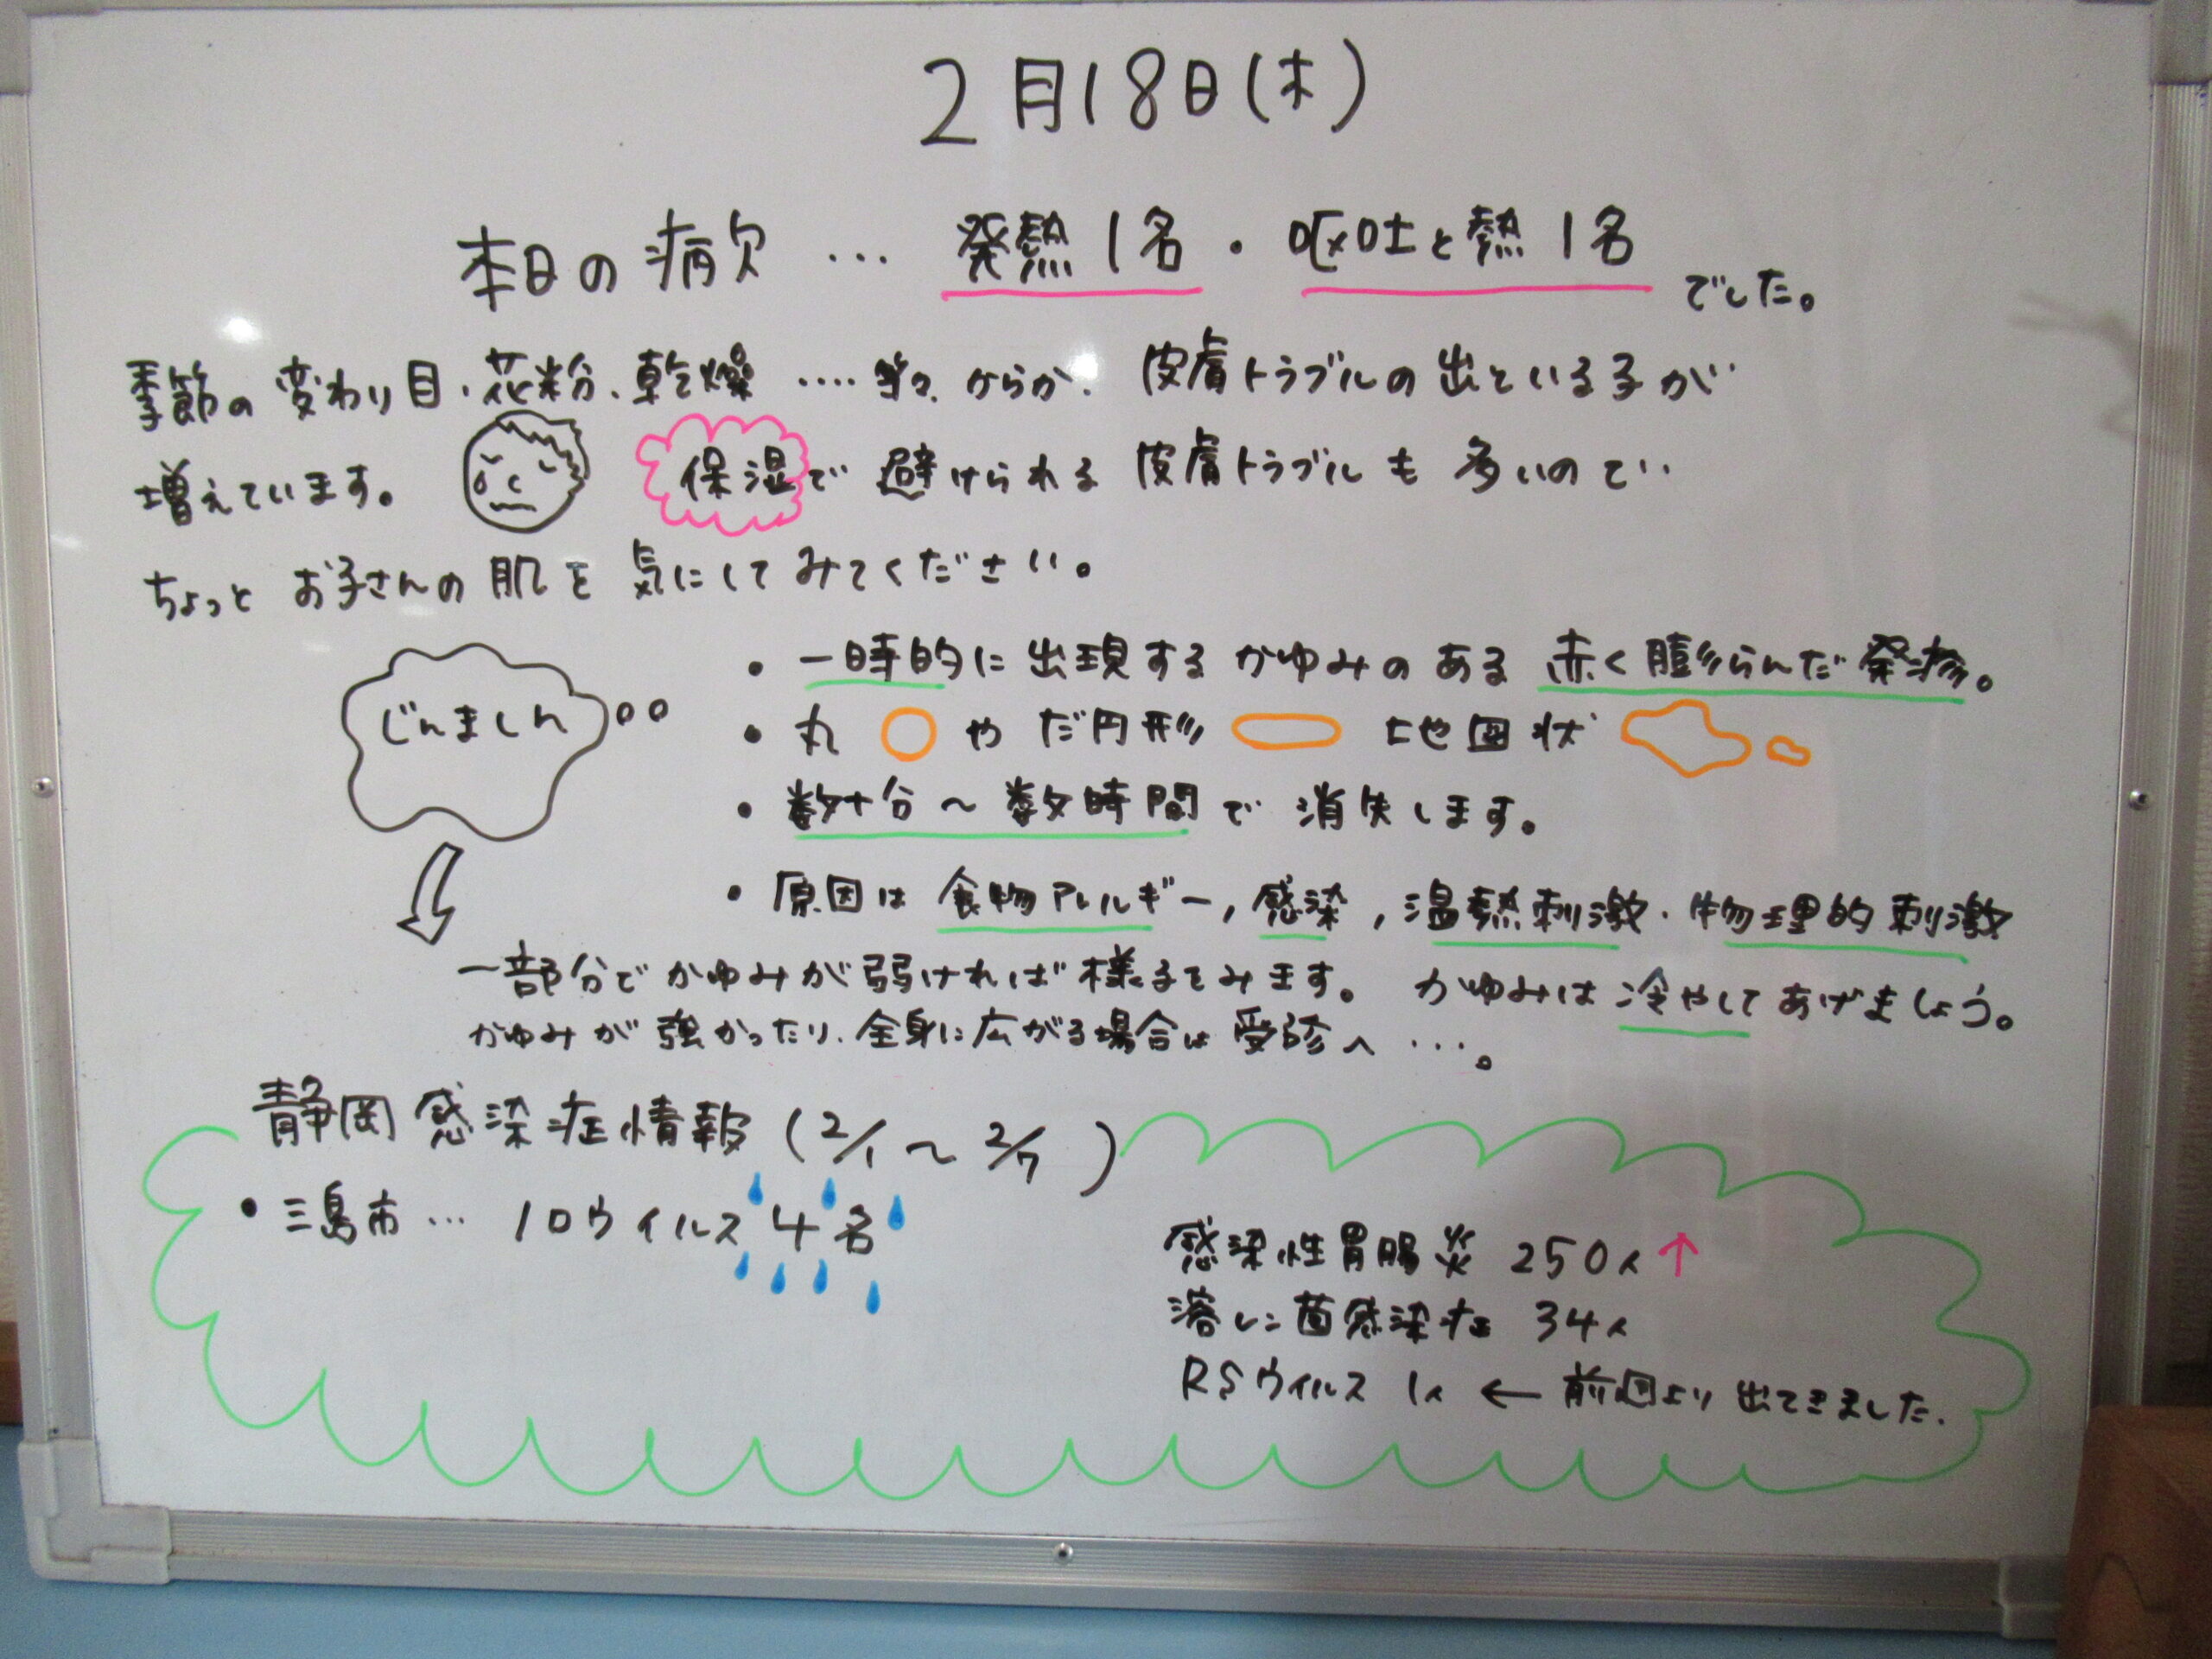 2月18日(木)
本日の病欠 … 発熱1名・嘔吐と熱1名 でした。
季節の変わり目・花粉、乾燥 ‥‥等々からか、皮膚トラブルの出ている子が
増えています。 保湿で避けられる皮膚トラブルも多いので‥
ちょっとお子さんの肌を気にしてみてください。
じんましん
・一時的に出現するかゆみのある赤く膨らんだ発疹。
・丸 や だ円形 地図状
・数十分~数時間で消失します。
・原因は食物アレルギー,感染,温熱刺激・物理的刺激
一部分でかゆみが弱ければ様子をみます。 かゆみは冷やしてあげましょう。
かゆみが強かったり、全身に広がる場合は受診へ …。
静岡感染症情報(2/1~2/7)
・三島市… ロウイルス4名
感染性胃腸炎 250人↑
溶レン菌感染症 34人
RSウイルス 1人 ← 前回より出てきました.